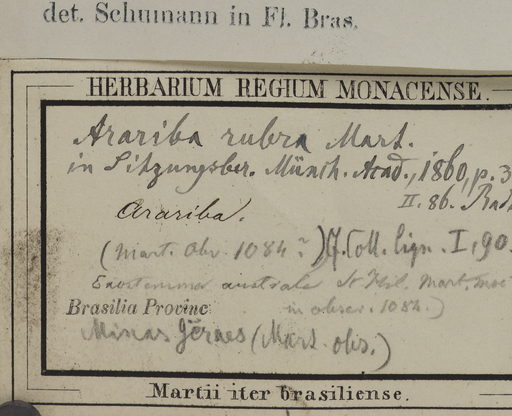 det. Schumann in Fl. Bras.
HERBARIUM REGIUM MONACENSE.
Arariba rubra Mart.
in Sitzungsber. Münch. Acad., 1860, p. 3
II. 86.
Arariba.
(Mart. Obs. 1084?) Coll. lign. I, 90.
Exostemma australe St Hil. Mart.
in observ. 1084.)
Brasilia Provinc
Minas Geraes (Mart. obs.)
Martii iter brasiliense.